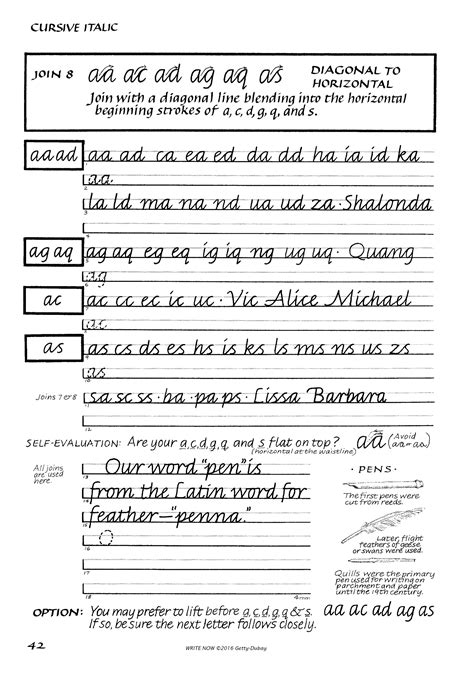 CURSIVE ITALIC
JOIN 8 aa ac ad ag aq as DIAGONAL TO HORIZONTAL
Join with a diagonal line blending into the horizontal
beginning strokes of a, c, d, g, q, and s.
aa ad aa ad ca ea ed da dd ha ia id ka
aa
la ld ma na nd ua ud za · Shalonda
ag aq ag aq eg eq ig iq ng ug uq · Quang
ag
ac ac cc ec ic uc · Vic Alice Michael
ac
as as cs ds es hs is ks ls ms ns us zs
as
Joins 7 or 8 sa sc ss · ba · pa ps · Lissa Barbara
SELF-EVALUATION: Are your a, c, d, g, q, and s flat on top? aa (Avoid
(horizontal at the waistline)
All joins
are used
here.
Our word "pen" is
from the Latin word for
feather—"penna."
O
· PENS ·
The first pens were
cut from reeds.
Later, flight
feathers of geese
or swans were used.
Quills were the primary
pen used for writing on
parchment and paper
until the 19th century.
4mm
OPTION: You may prefer to lift before a, c, d, g, q & s. aa ac ad ag as
If so, be sure the next letter follows closely.
42
WRITE NOW ©2016 Getty-Dubay